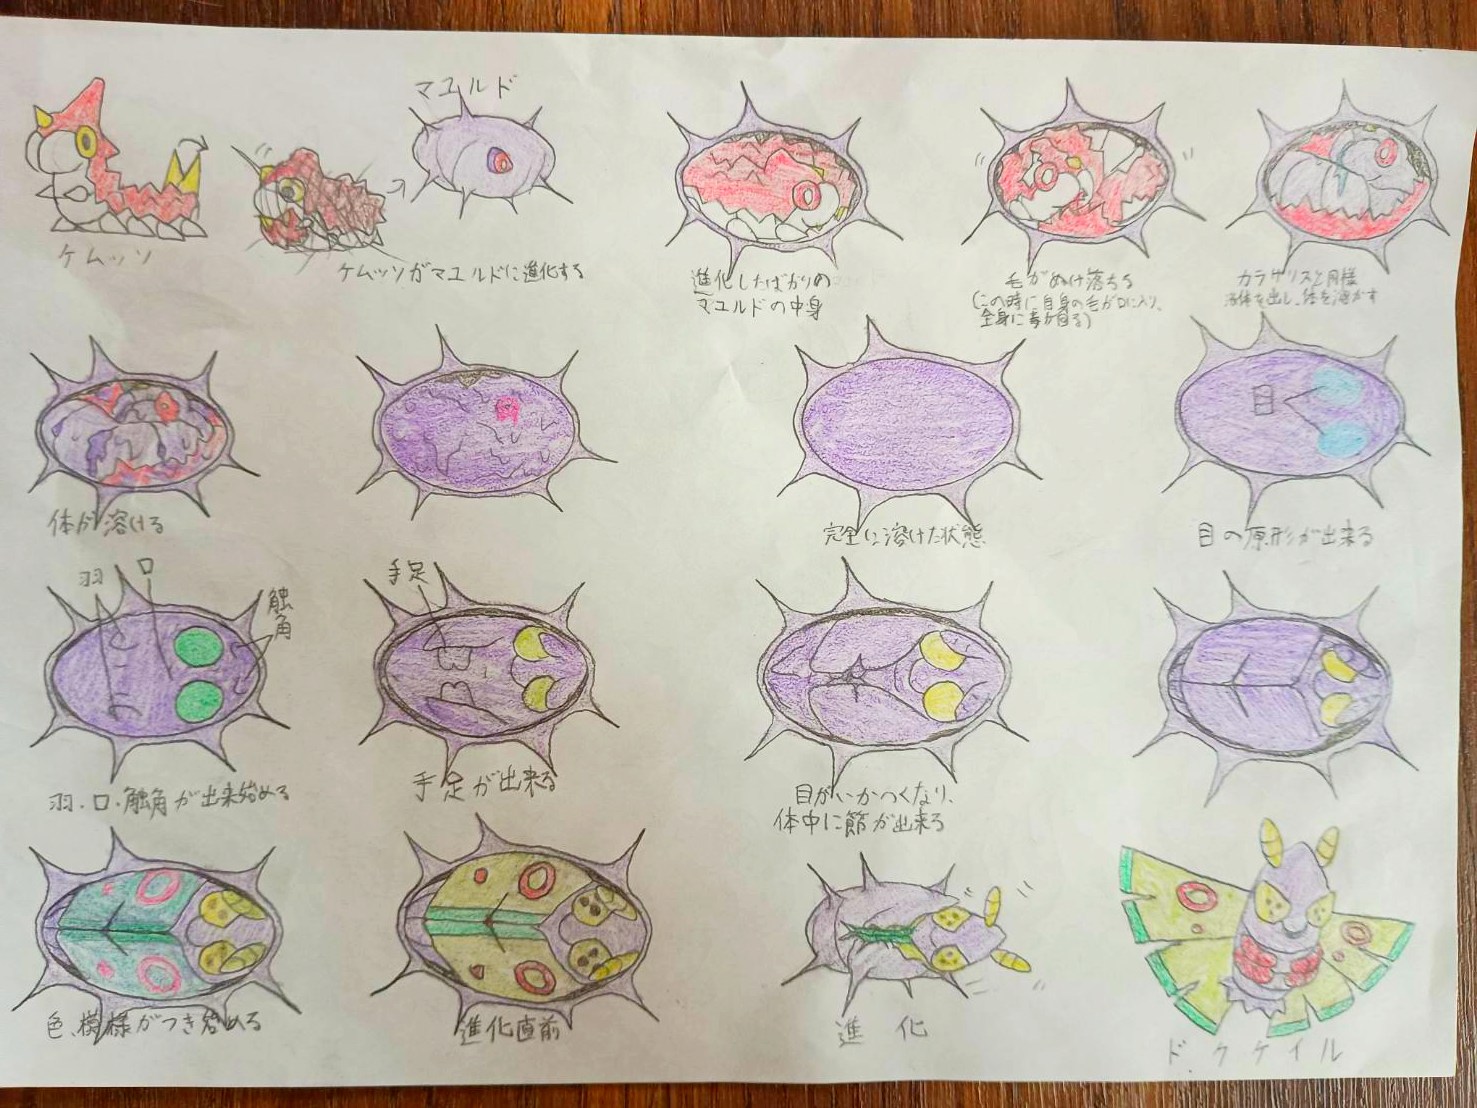 マユルド
ケムッソ
ケムッソがマユルドに進化する
進化したばかりの
マユルドの中身
毛がぬけ落ちる
(この時に自身の毛が口に入り、
全身に毒が回る)
カラサリスと同様
液体を出し、体を溶かす
体が溶ける
完全に溶けた状態
目
目の原形が出来る
羽
口
触角
羽・口・触角が出来始める
手足
手足が出来る
目がいかつくなり、
体中に節が出来る
色、模様がつき始める
進化直前
進化
ドクケイル